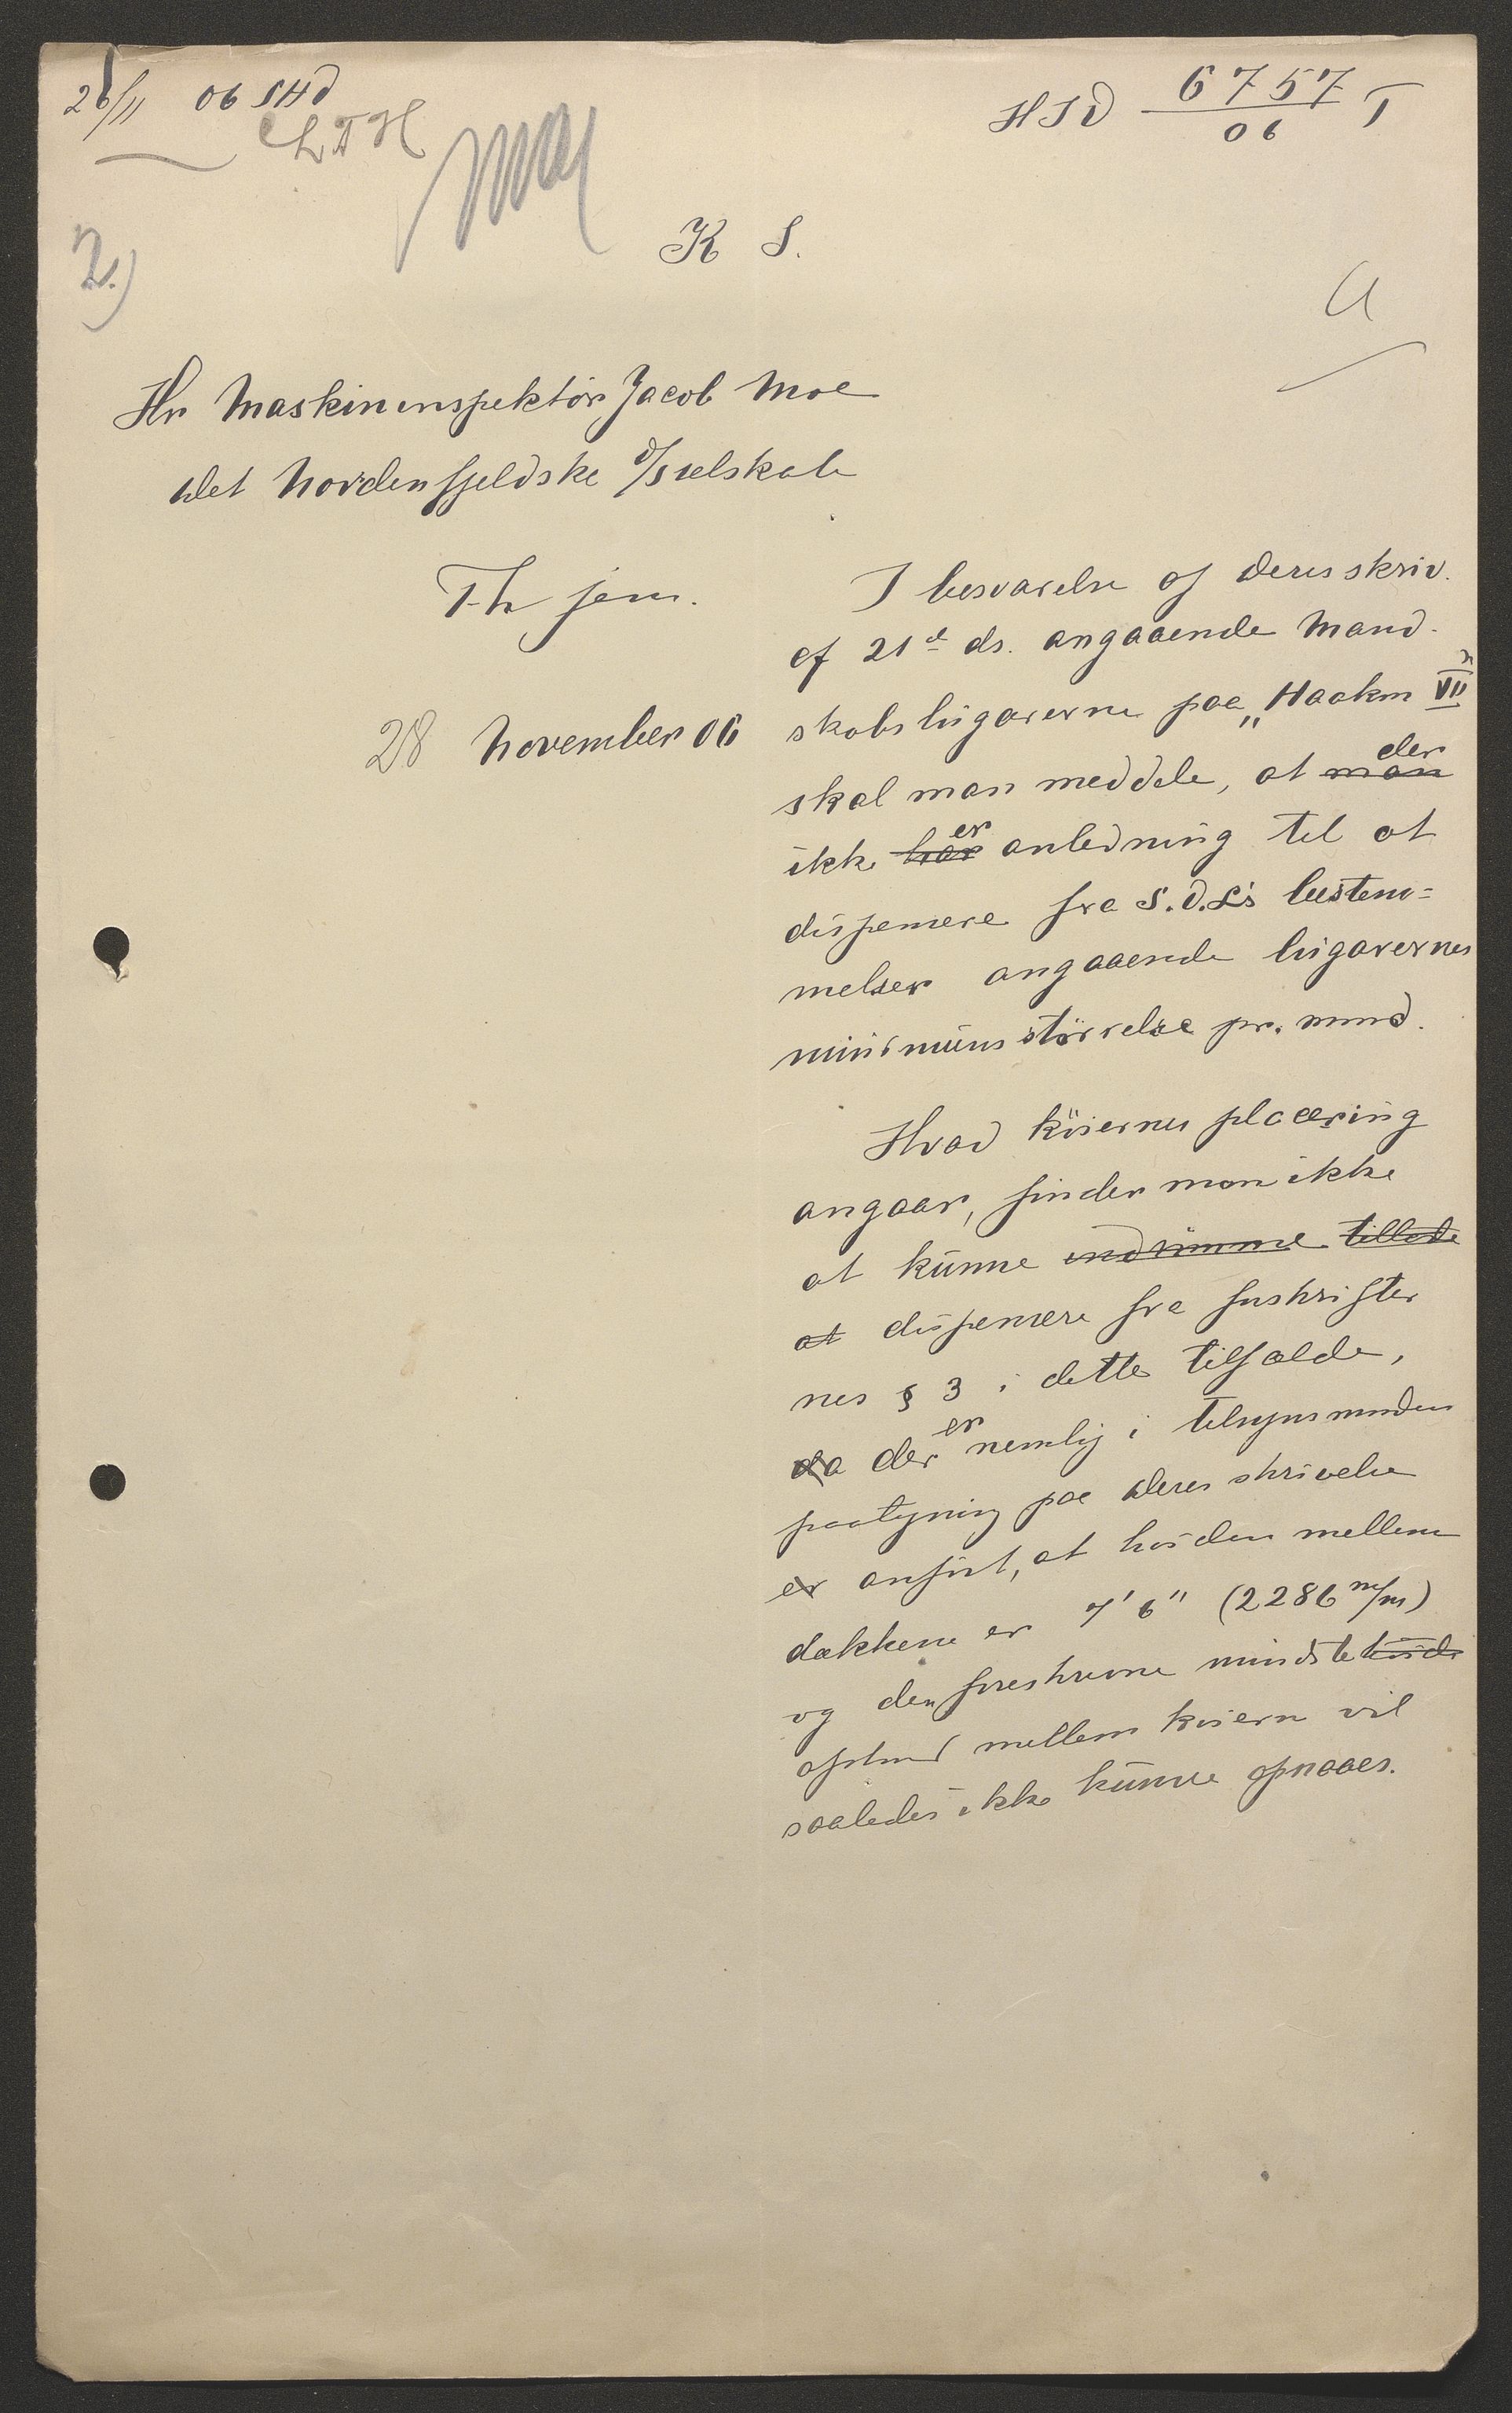 26/11 06 SHD
HID 6757/06 T
LTH
Moe
K S.
2.)
U
Hr Maskininspektør Jacob Moe
Det Nordenfjeldske D/Sselskab
Thjem.
28 November 06
I besvarelse af Deres skriv.
af 21de ds. angaaende Mand-
skabslugarerne paa „Haakon VII"
skal man meddele, at man der
ikke har er anledning til at
dispensere fra S.D.L's bestem=
melser angaaende lugarernes
minimumsstørrelse pr. mand.
Hvad køiernes placering
angaar, finder man ikke
at kunne indrømme tillade
at dispensere fra forskrifter
nes § 3 i dette tilfælde,
da der er nemlig i tilsynsmandens
paategning paa Deres skrivelse
er anført, at høiden mellem
dækkene er 7' 6" (2286 m/m)
og den foreskrevne mindste høide
afstand mellem køierne vil
saaledes ikke kunne opnaaes.